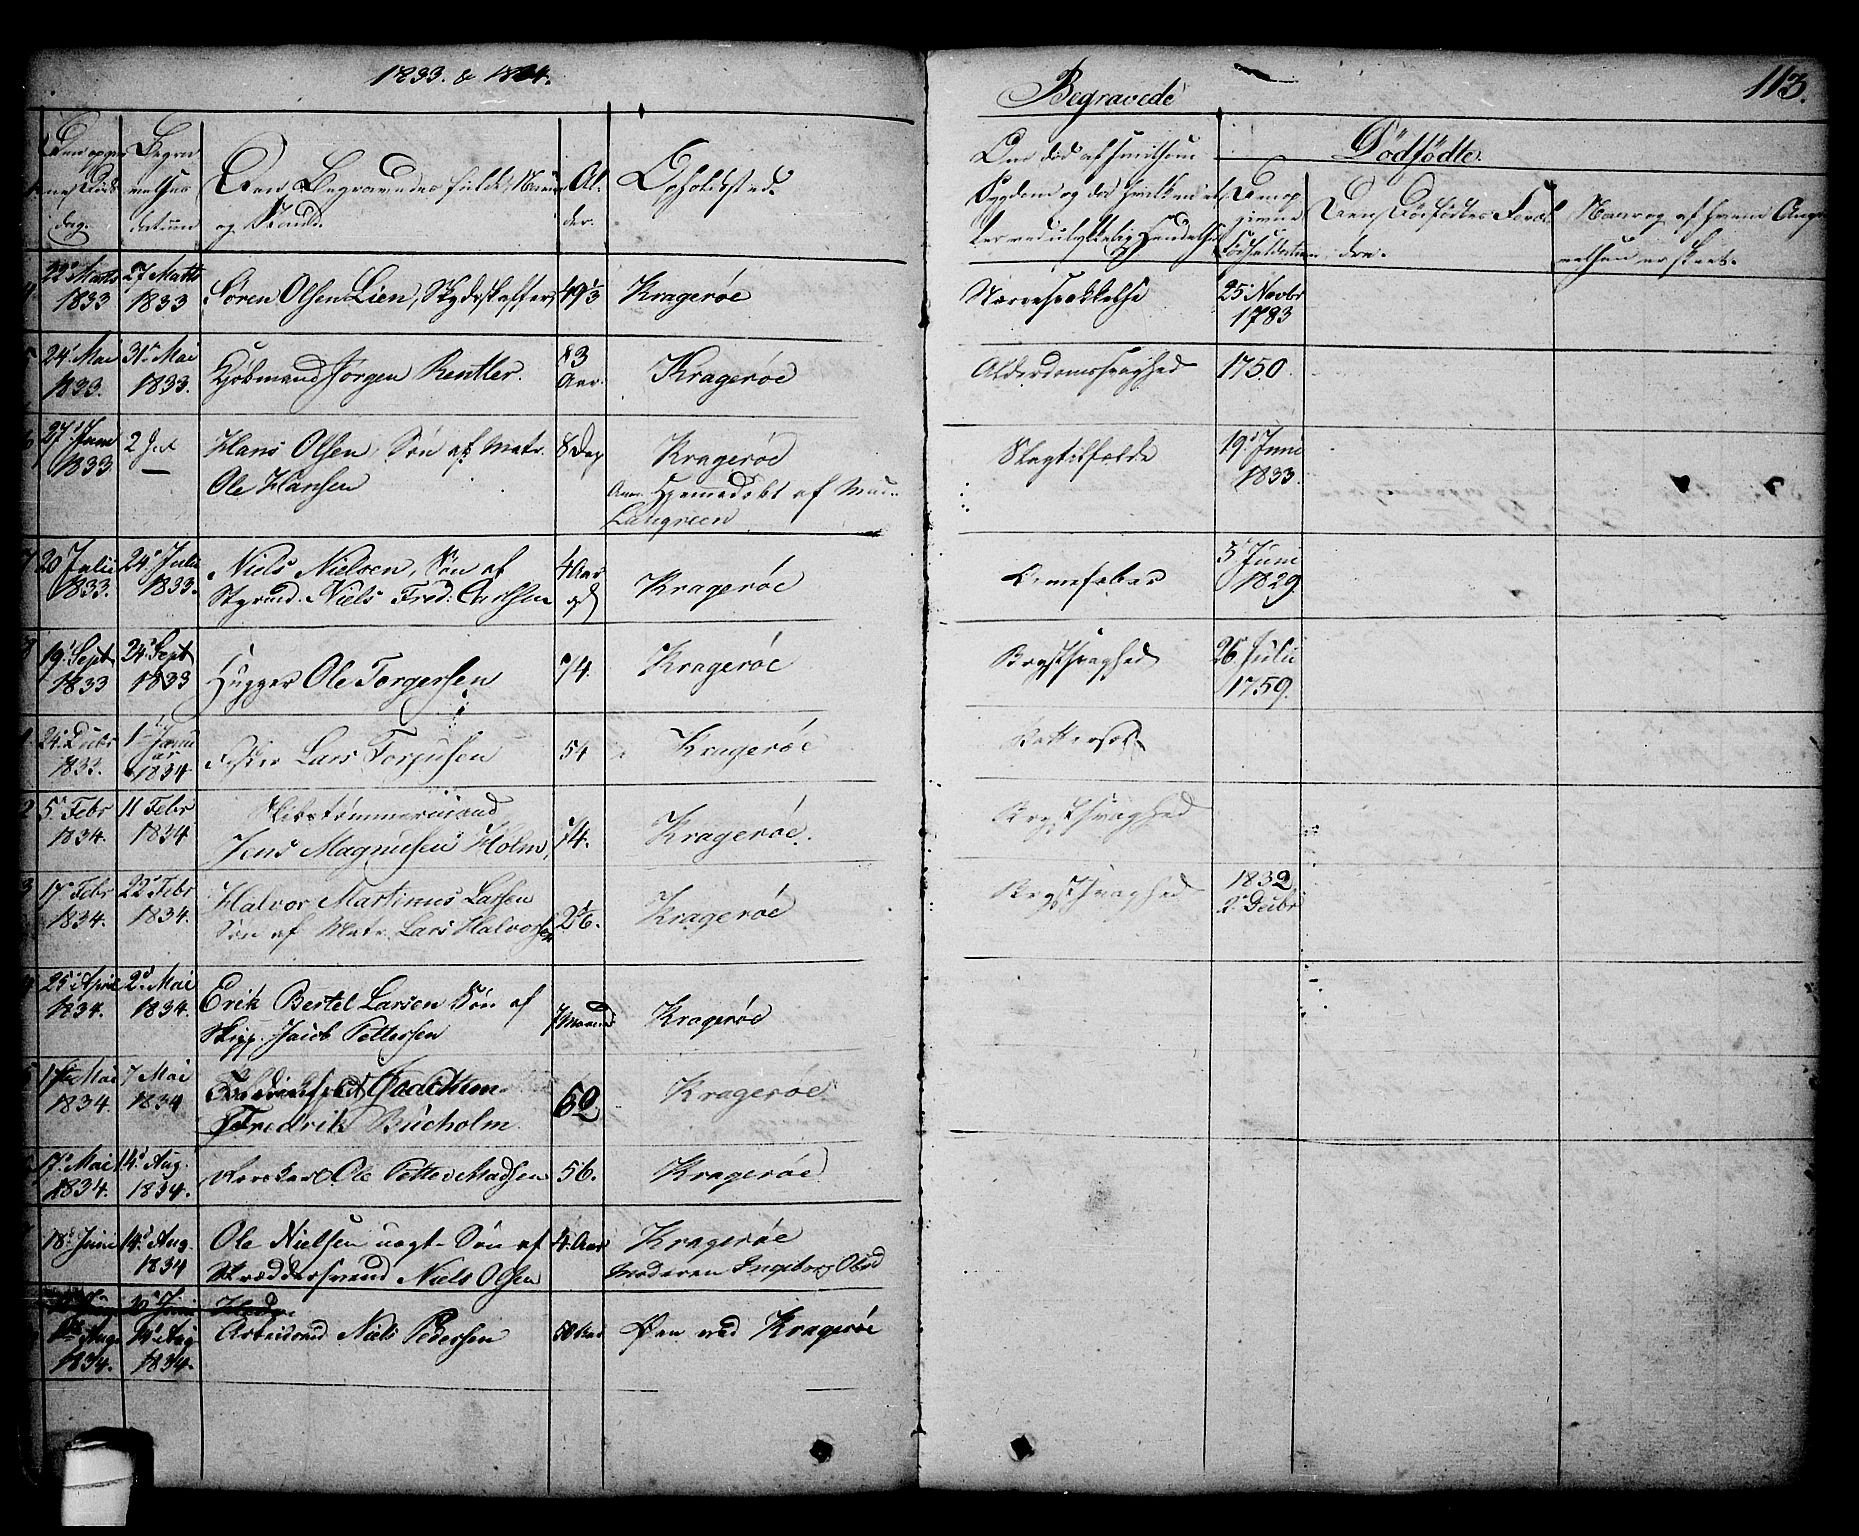 1833. & 1834.
Begravede
113.
Den opgiv
ne Døds
dag.
Begra
velses
datum
Den Begravedes fulde Navn
og Stand.
Al-
der.
Opholdssted.
Om død af smitsom
Sygdom og
ved ulykkelig Hendelse
Dødfødte.
Den op
givne
Fødselsdatum
Den Dødfødtes Foræl
dre.
Naar og af hvem Ange
velsen er skeet.
22 Marts
1833
27 Marts
1833
Søren Olsen Lien, Skydsskaffer
49 1/3
Kragerøe
25 Novbr
1783
24 Mai
1833.
31 Mai
1833.
Kjøbmand Jørgen Rentler.
83
Aar.
Kragerøe
Alderdomssvaghed
1750.
27 Juni
1833
2 Jul
—
Hans Olsen, Søn af Matr.
Ole Hansen
8 Dag
Kragerøe
Anm. Hjemmedøbt af Mad.
Langreen
Slagtilfælde
19 Juni
1833.
20 Julii
1833.
24 Julii
1833.
Niels Nielsen, Søn af
Styrmd. Niels Fred: Carlsen
4 Aar
gl
Kragerøe
5 Juni
1829.
19 Sept
1833
24 Sept
1833
Hugger Ole Torgersen
74.
Kragerøe
Brystsvaghed
26 Julii
1759.
24. Decbr
1833.
1 Janu
ar
1834
Fisker Lars Torjusen
54
Kragerøe
5 Febr
1834.
11 Febr
1834
Skibstømmermand
Jens Magnusen Holm,
74.
Kragerøe.
Brystsvaghed
17 Febr
1834.
22 Febr
1834.
Halvor Martinus Lassen
Søn af Matr. Lars Halvorsen
Kragerøe
Brystsvaghed
1832
2 Decbr
25 April
1834.
2 Mai
1834.
Erik Bertel Larsen Søn af
Skipp. Jacob Pettersen
7 Maaned
Kragerøe
Mai
1834.
7 Mai
1834
Joachum
Fredrik Bucholm.
52
Kragerøe
17 Mai
1834.
14 Aug.
1834.
Ole Petter Madsen
56.
Kragerøe
18 Juni
14 Aug.
1834
Ole Nielsen uægt. Søn af
Skræddersvend Niels Olsen
4. Aar
Kragerøe
Moderen Ingeborg
Aug
1834.
Aug
1834.
Arbeidsmd Niels Pedersen
58 Aar
Øen ved Kragerøe